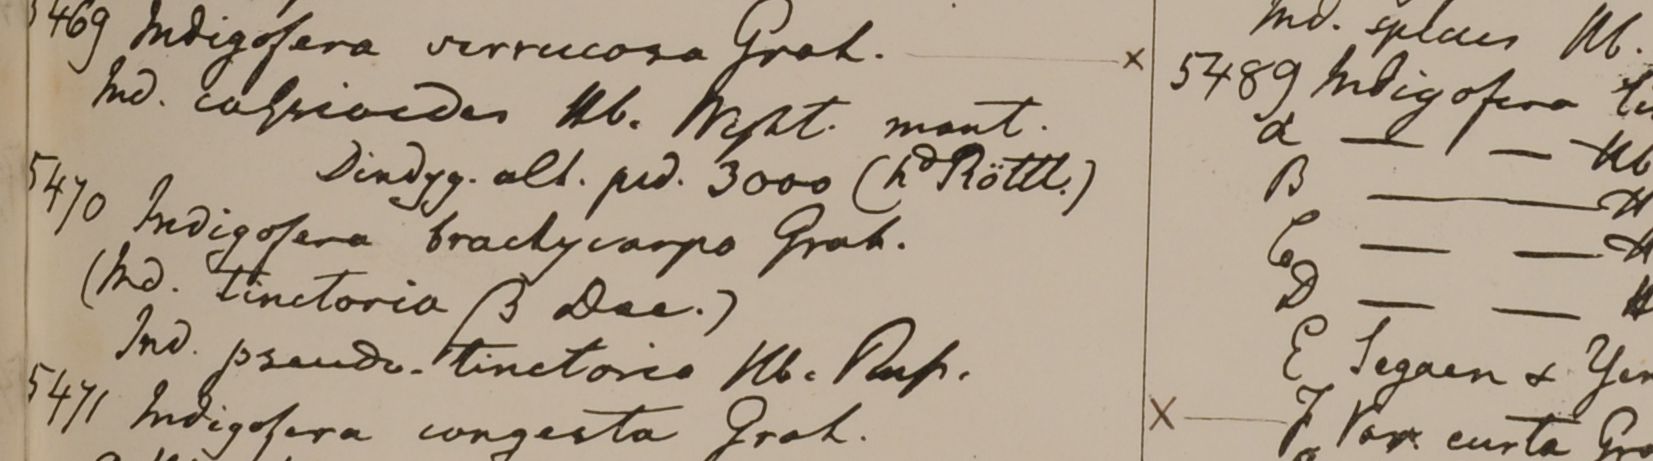 5469 Indigofera verrucosa Grah. x
Ind. caspioides Hb. Wight. mont.
Dindyg. alt. ped. 3000 (hd Röttl.)
5470 Indigofera brachycarpa Grah.
(Ind. tinctoria β Dec.)
Ind. pseudo-tinctoria Hb. Rup.
5471 Indigofera congesta Grah.
Ind. Hb.
5489 Indigofera
α — — Hb
B — H
C — — H
D — — H
E Segaen &
x — F Var. curta Gra